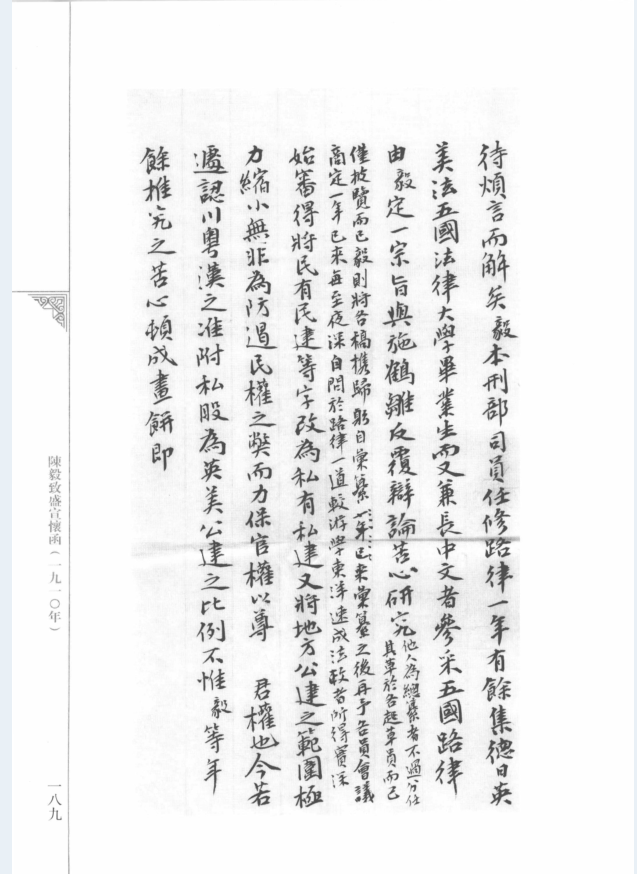 待煩言而解矣毅本刑部司員任修路律一年有餘集德日英
美法五國法律大學畢業生而又兼長中文者參采五國路律
由毅定一宗旨與施鶴雛反覆辯論苦心研究他人為總纂者不過分任
其草於各起草員而已
僅披覽而已毅則將各稿攜歸躬自彙纂一年已來彙纂之後再予各員會議
商定一年已來每至夜深自問於路律一道較游學東洋速成法政者所得實深
始審得將民有民建等字改為私有私建又將地方公建之範圍極
力縮小無非為防遏民權之弊而力保官權以尊 君權也今若
遽認川粵漢之准附私股為英美公建之比例不惟毅等年
餘推究之苦心頓成畫餅即
陳毅致盛宣懷函(一九一〇年)
一八九